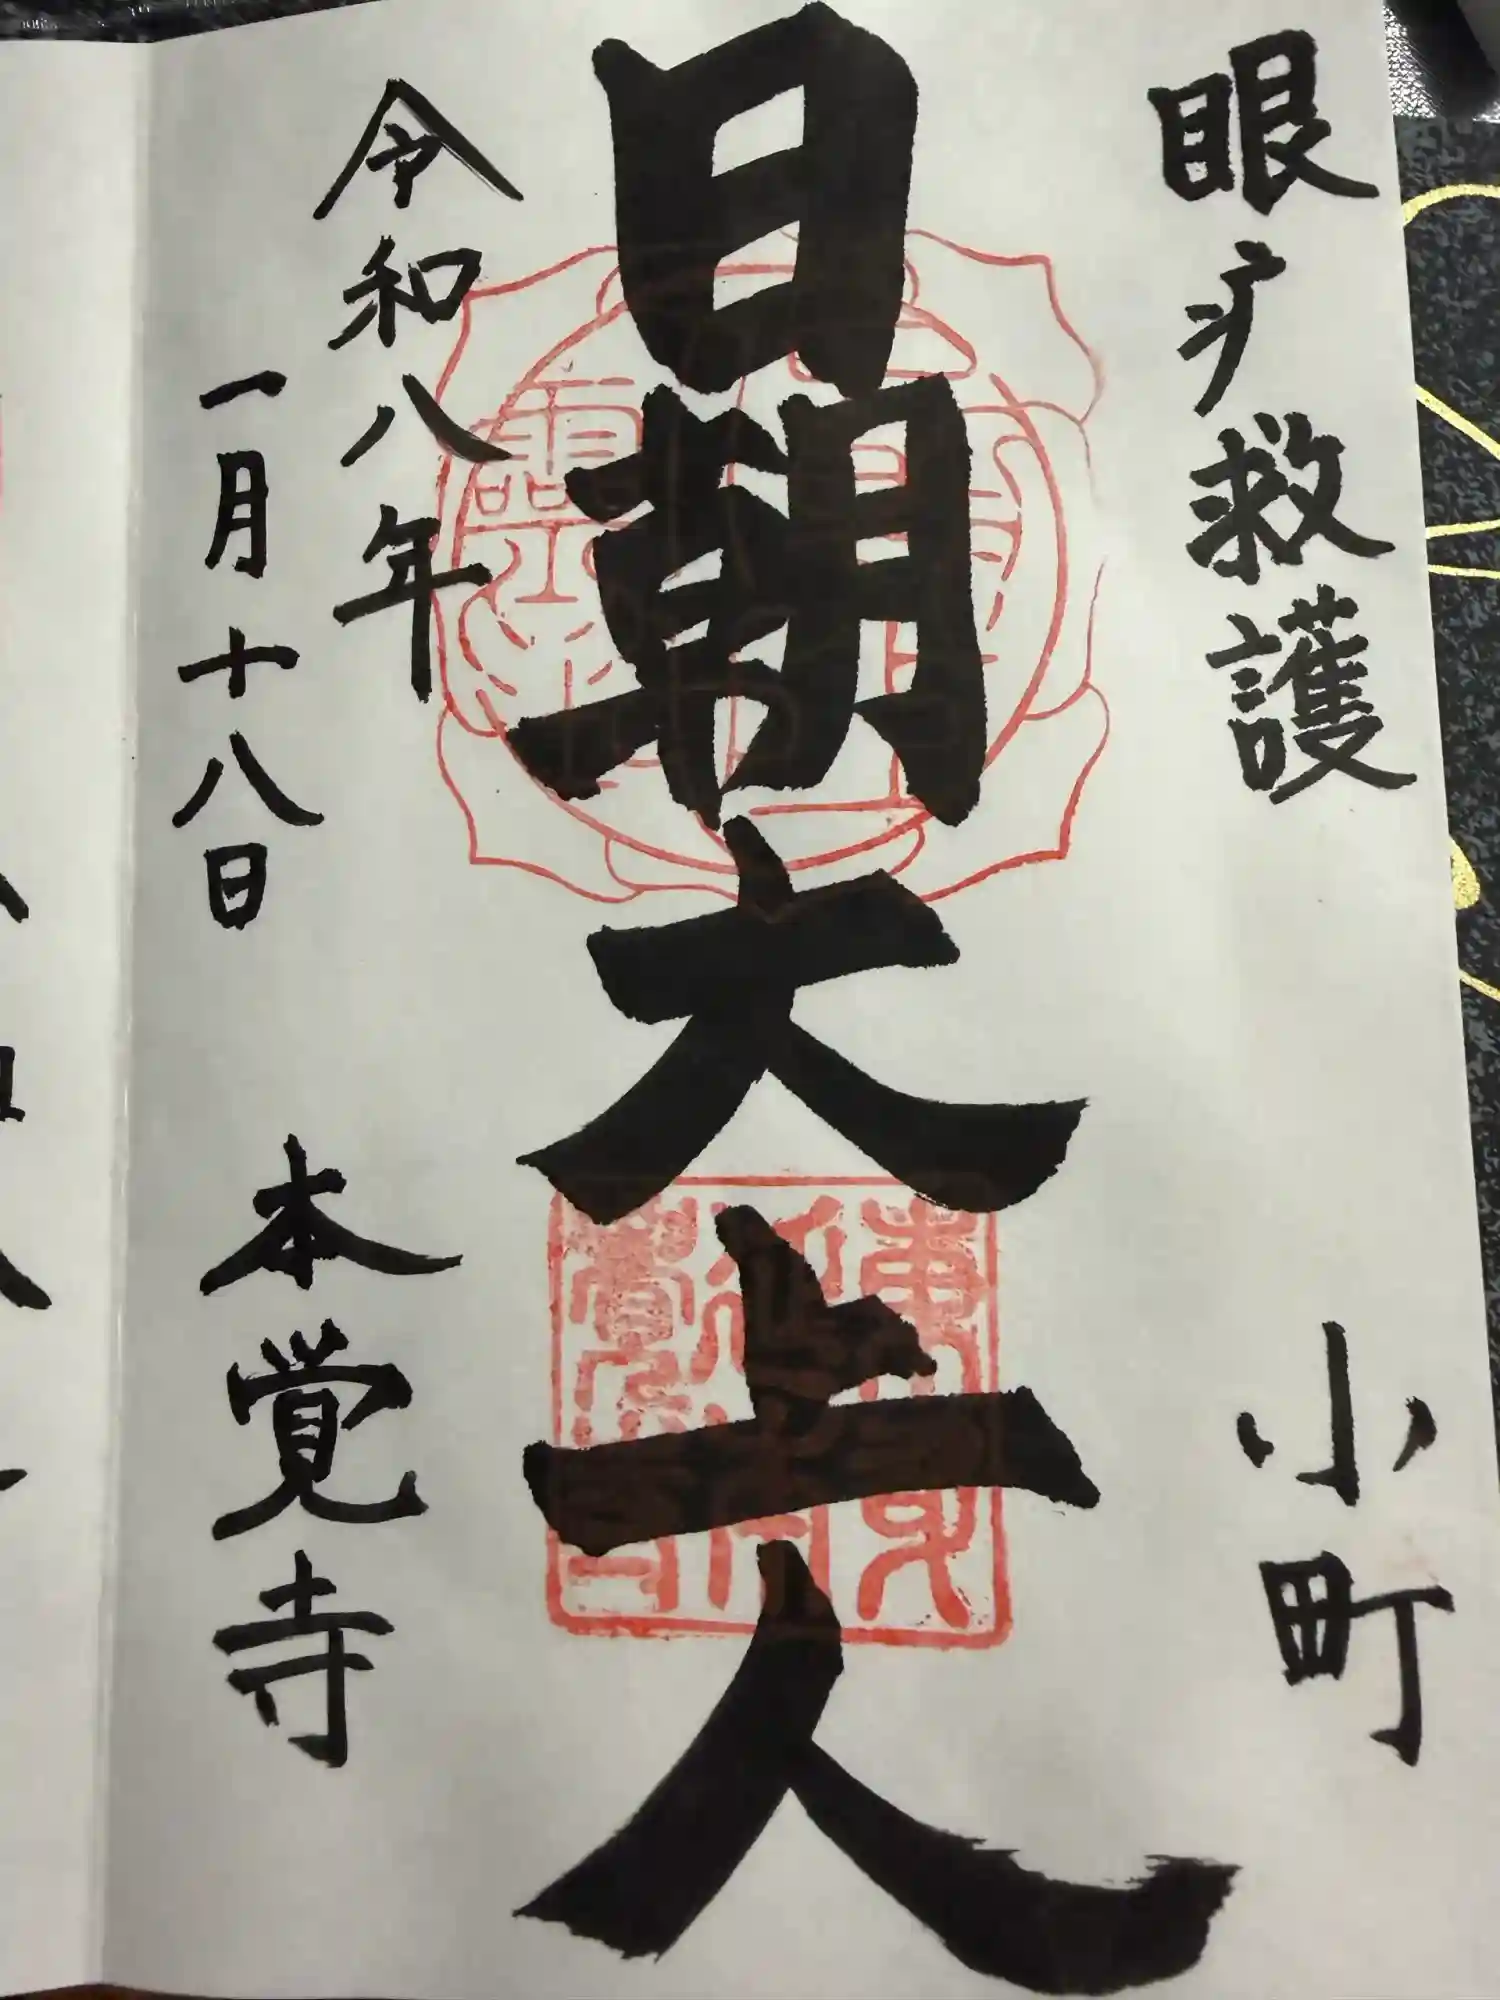 眼疒救護
小町
日朝大上人
令和八年
一月十八日
本覚寺